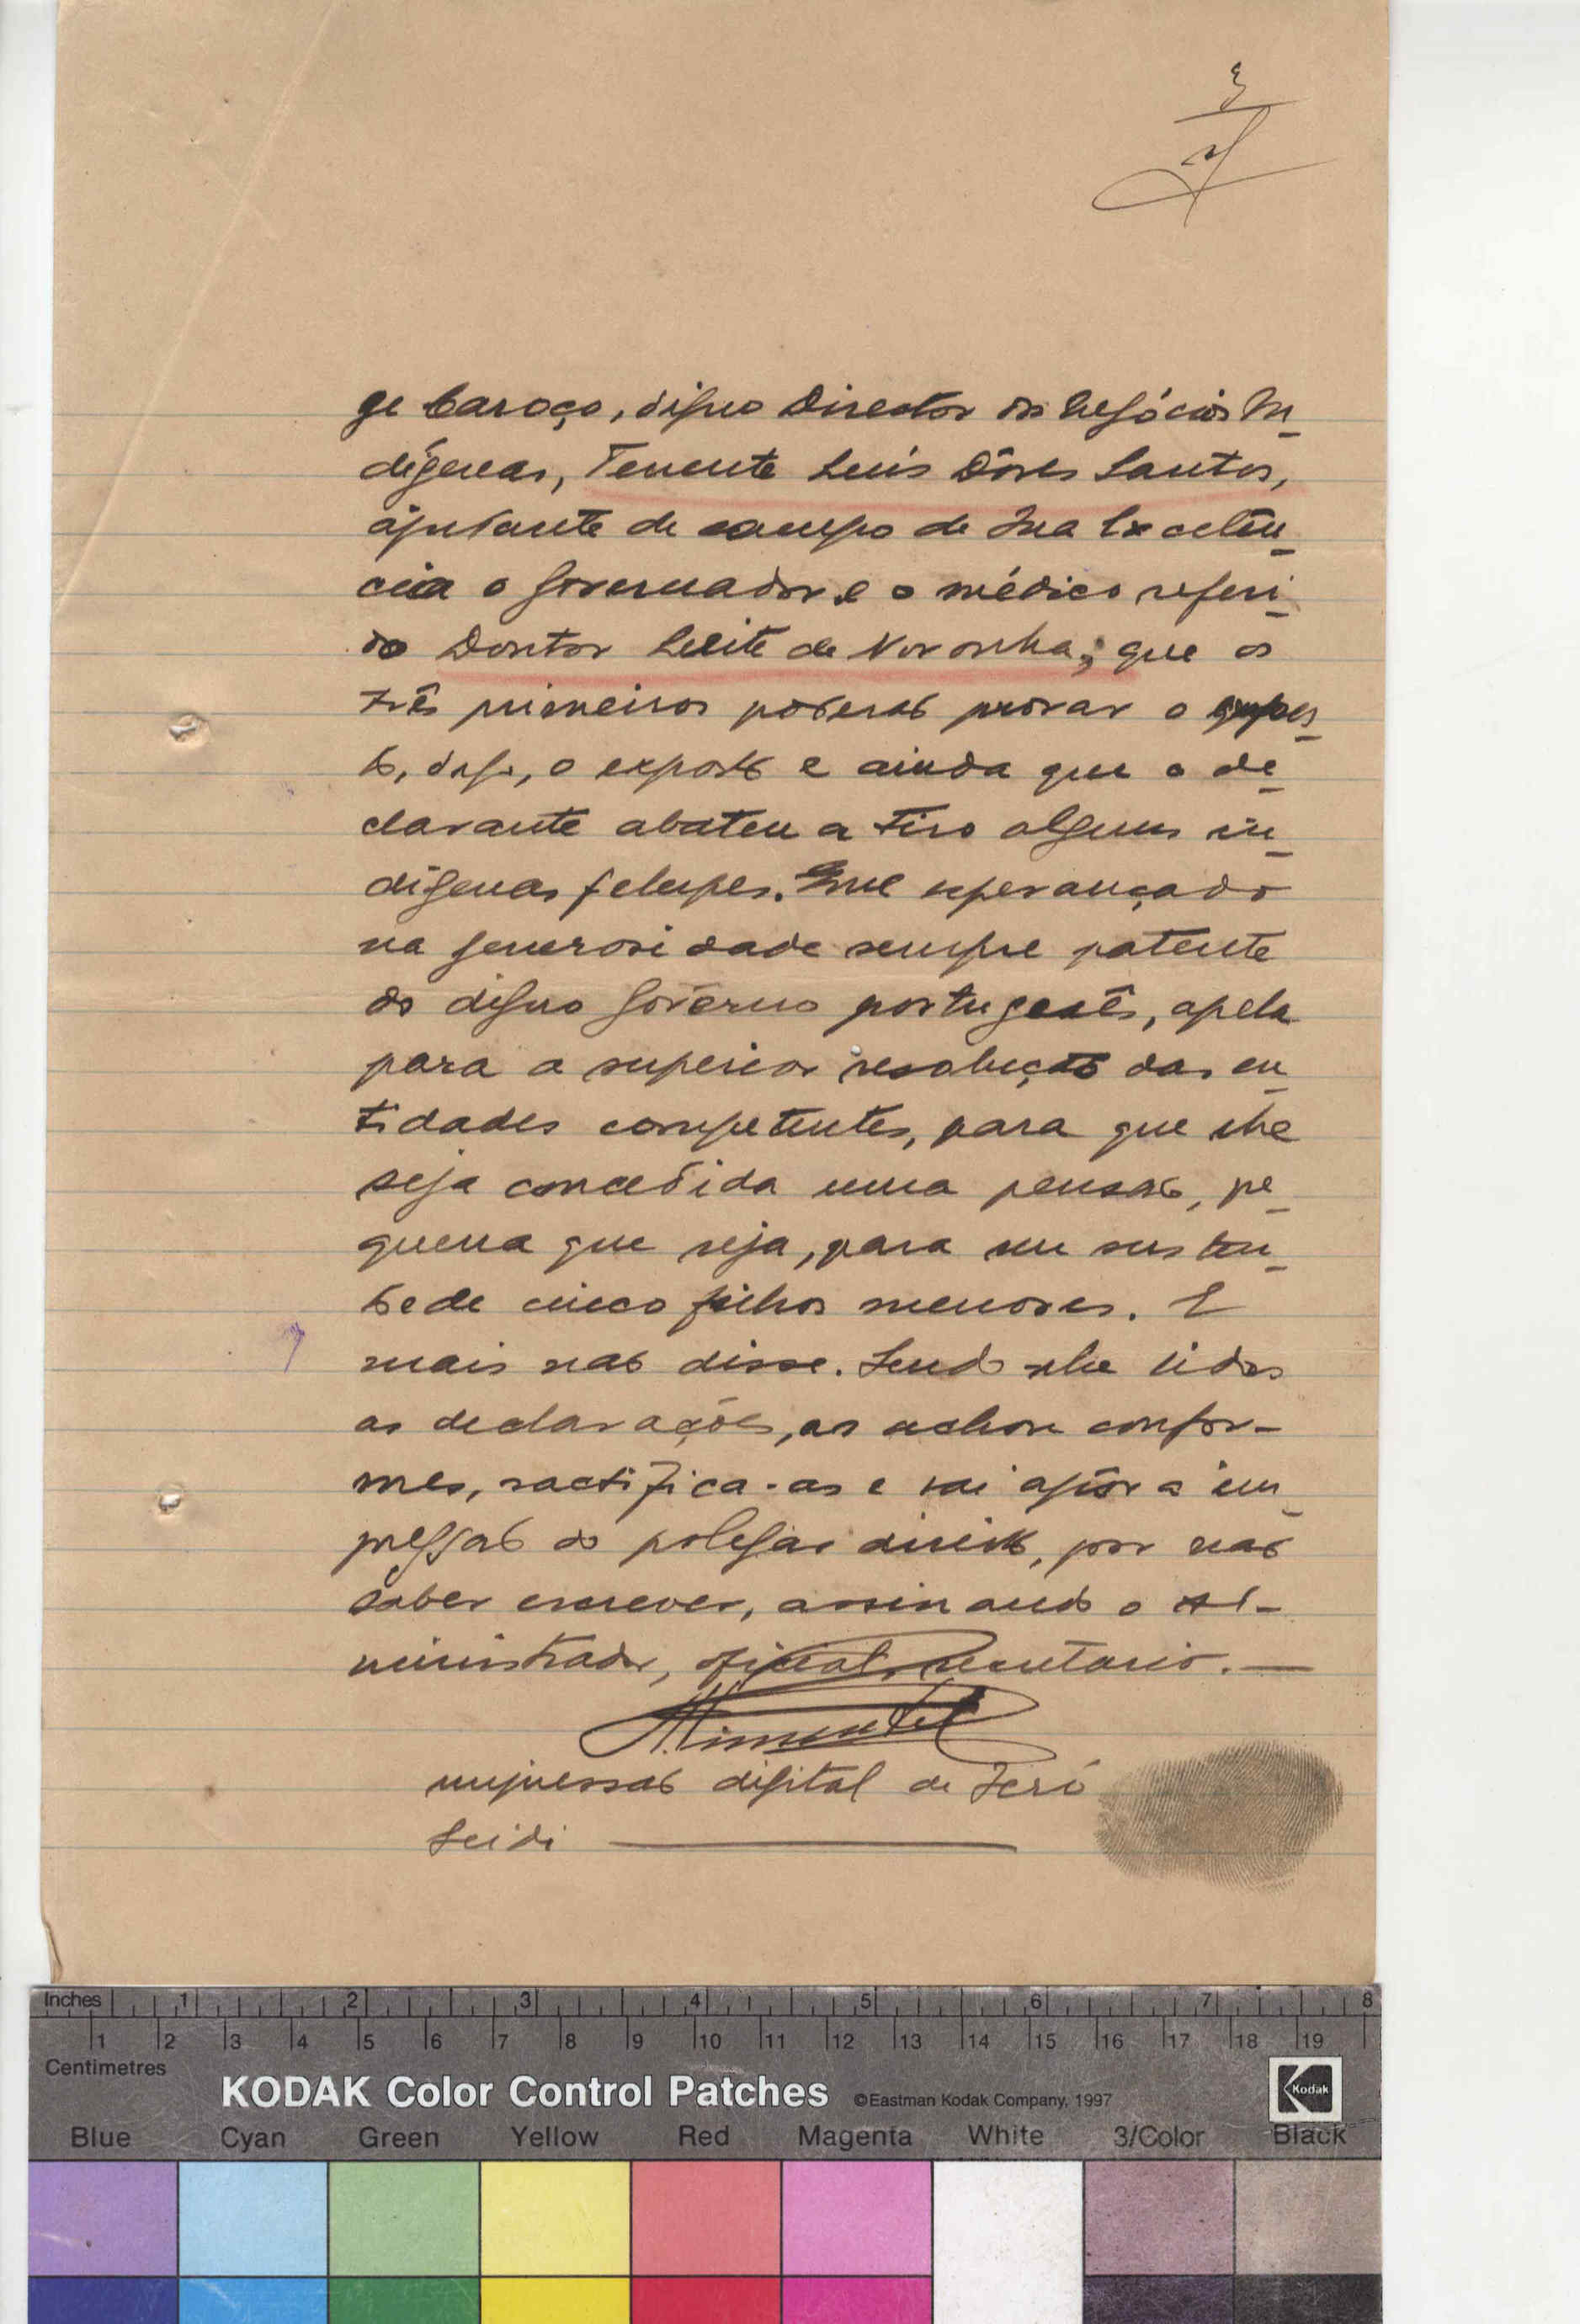 3
ge Caroço, digno Director dos Negócios In_
dígenas, Tenente Luís Dôres Santos,
ajudante de campo de Sua Excelên_
cia o Governador e o médico referi_
do Doutor Leite de Noronha; que os
três primeiros poderão provar o
to, digo, o exposto e ainda que o de_
clarante abateu a tiro alguns in_
dígenas felupes. Que esperançado
na generosidade sempre patente
do digno Govêrno portugês, apela
para a superior resolução das en_
tidades competentes, para que lhe
seja concedida uma pensão, pe_
quena que seja, para seu susten_
to e de cinco filhos menores. E
mais não disse. Sendo-lhe lidas
as declarações, as achou confor-
mes, ractifica-as e vai apôr a im_
pressão do polegar direito, por não
saber escrever, assinando o Ad-
ministrador, oficial, secretário. —
Pimentel
impressão digital de Jeró
Seidi
Inches 1 2 3 4 5 6 7 8
1 2 3 4 5 6 7 8 9 10 11 12 13 14 15 16 17 18 19
Centimetres
KODAK Color Control Patches ©Eastman Kodak Company, 1997
Kodak
Blue Cyan Green Yellow Red Magenta White 3/Color Black